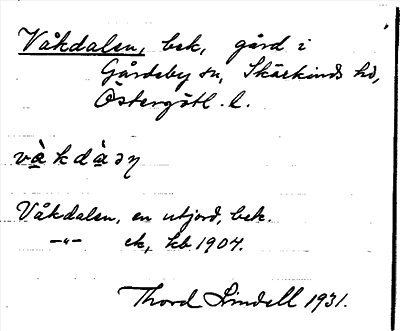 Våkdalen, bek, gård i
Gårdeby sn, Skärkinds hd,
Östergötl. l.
vàkdàən
Våkdalen, en utjord, bek.
–"– ek, kb 1904.
Thord Lindell 1931.